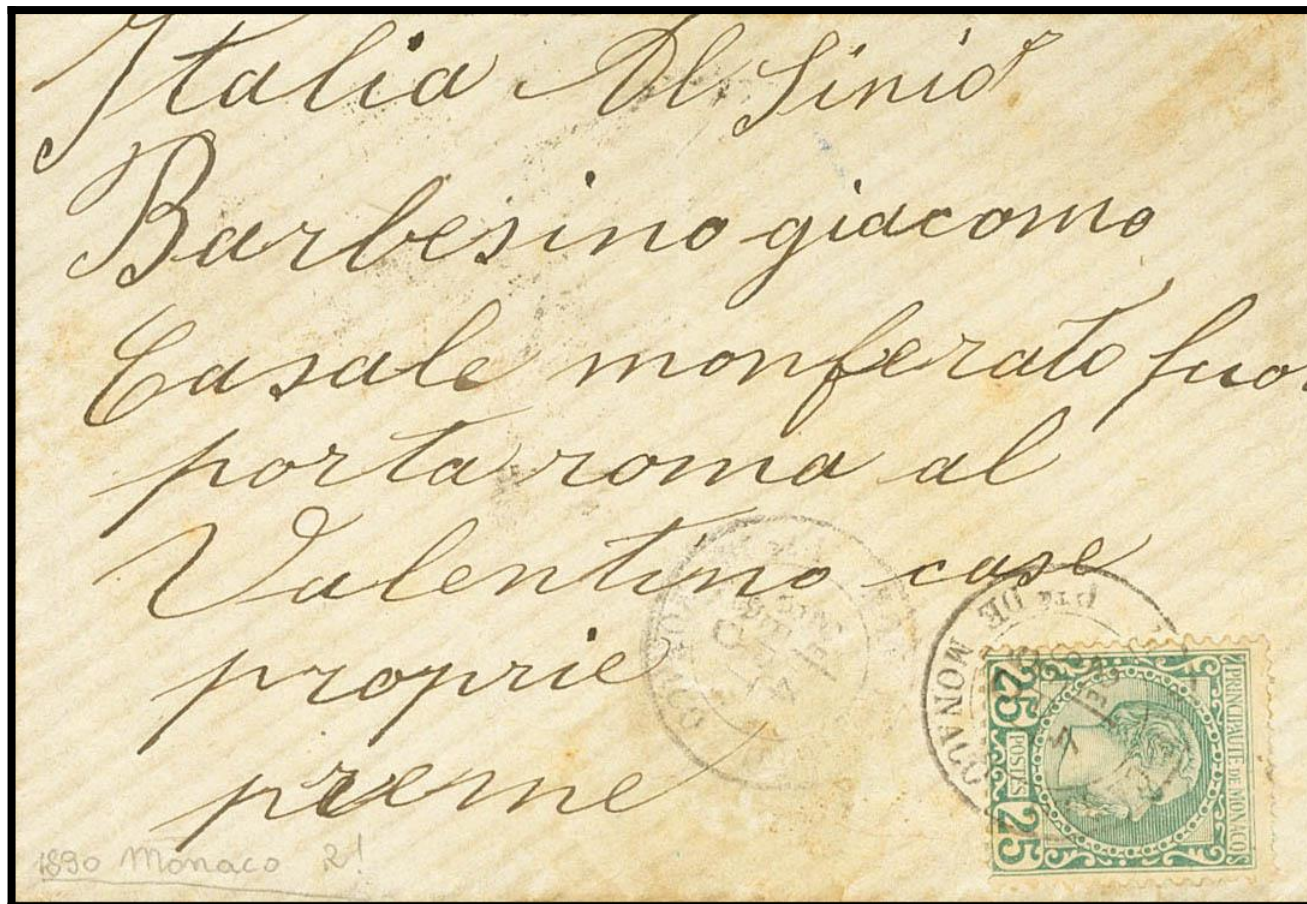 Italia Al Sinior
Barbesino giacomo
Casale monferato fuo
porta roma al
Valentino case
proprie
preme
Pté DE MONACO
PRINCIPAUTÉ DE MONACO
25 POSTES 25
1890 Monaco 2!